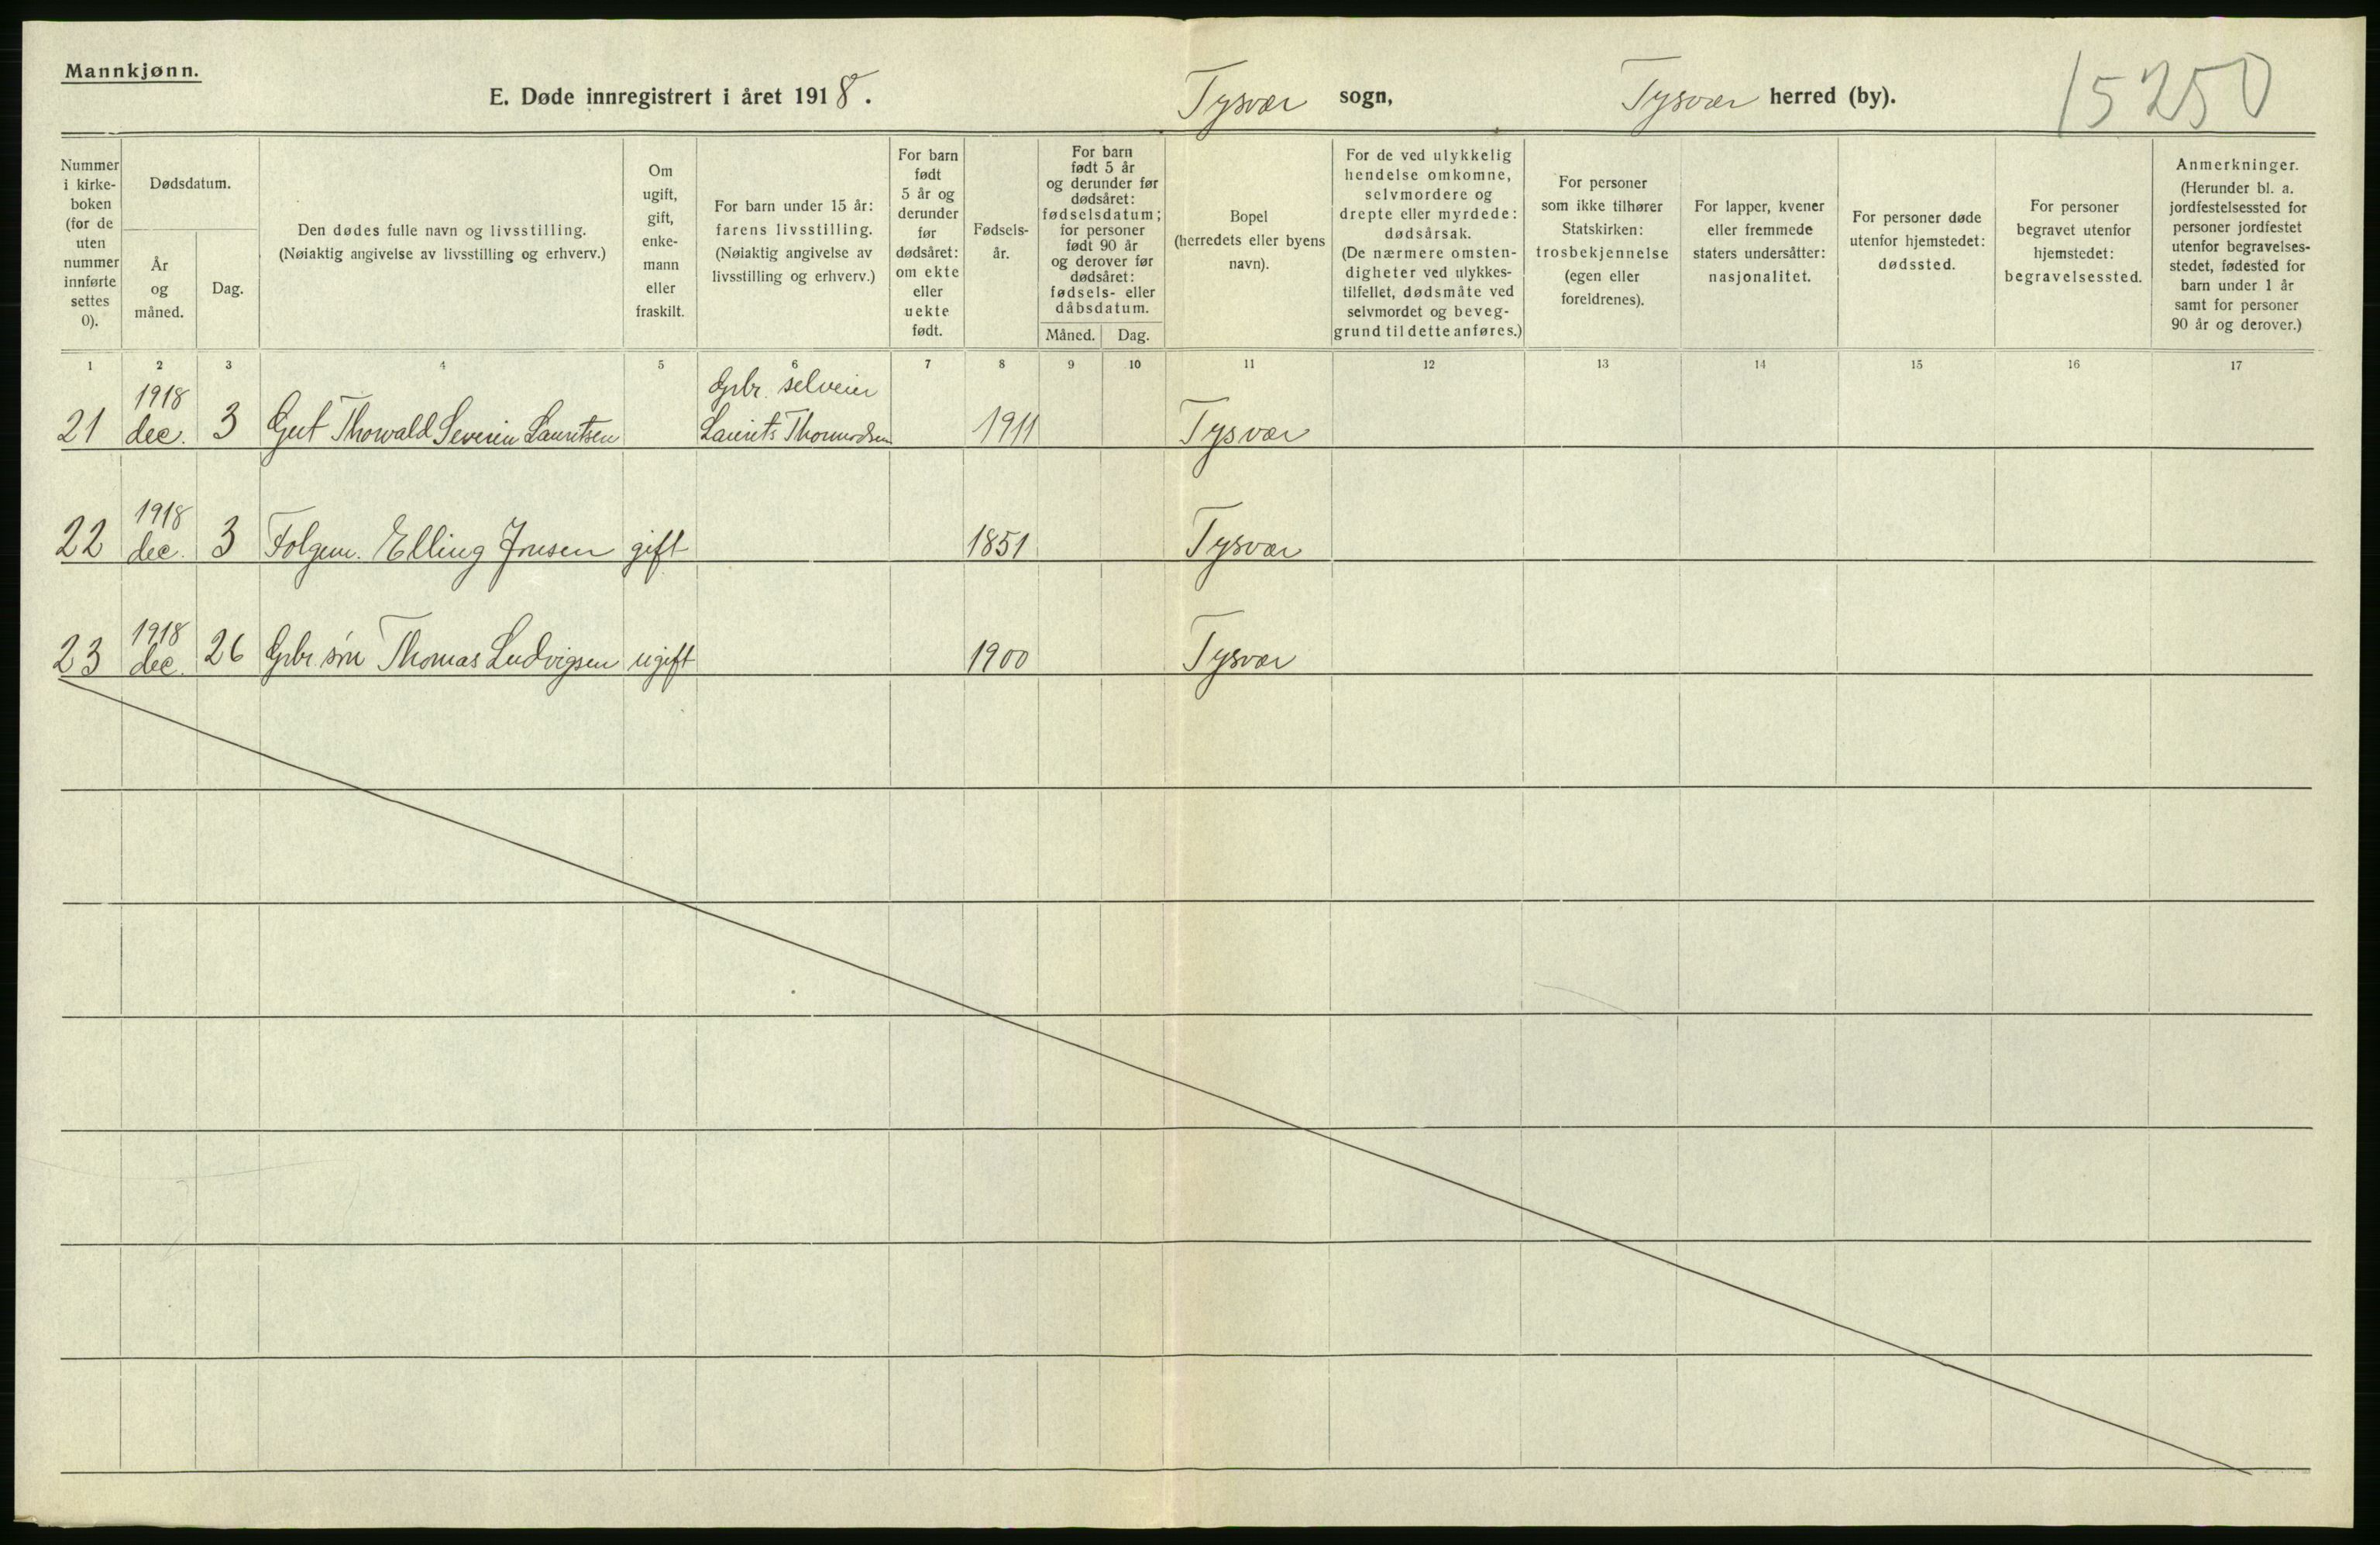 Mannkjønn.
E. Døde innregistrert i året 1918.
Tysvær sogn,
Tysvær herred (by).
15250
Nummer
i kirke-
boken
(for de
uten
nummer
innførte
settes
0).
Dødsdatum.
År
og
måned.
Dag.
Den dødes fulle navn og livsstilling.
(Nøiaktig angivelse av livsstilling og erhverv.)
Om
ugift,
gift,
enke-
mann
eller
fraskilt.
For barn under 15 år:
farens livsstilling.
(Nøiaktig angivelse av
livsstilling og erhverv.)
For barn
født
5 år og
derunder
før
dødsåret:
om ekte
eller
uekte
født.
Fødsels-
år.
For barn
født 5 år
og derunder før
dødsåret:
fødselsdatum;
for personer
født 90 år
og derover før
dødsåret:
fødsels- eller
dåbsdatum.
Måned. Dag.
Bopel
(herredets eller byens
navn).
For de ved ulykkelig
hendelse omkomne,
selvmordere og
drepte eller myrdede:
dødsårsak.
(De nærmere omsten-
digheter ved ulykkes-
tilfellet, dødsmåte ved
selvmordet og beveg-
grund til dette anføres.)
For personer
som ikke tilhører
Statskirken:
trosbekjennelse
(egen eller
foreldrenes).
For lapper, kvener
eller fremmede
staters undersåtter:
nasjonalitet.
For personer døde
utenfor hjemstedet:
dødssted.
For personer
begravet utenfor
hjemstedet:
begravelsessted.
Anmerkninger.
(Herunder bl. a.
jordfestelsessted for
personer jordfestet
utenfor begravelses-
stedet, fødested for
barn under 1 år
samt for personer
90 år og derover.)
1 2 3 4 5 6 7 8 9 10 11 12 13 14 15 16 17
1918 Gbr. selveier
21 dec. 3 Gut Thorvald Severin Lauritsen Laurits Thormodsen 1911 Tysvær
1918
22 dec. 3 Folgem. Elling Jonsen gift 1851 Tysvær
1918
23 dec. 26 Gbr. søn Thomas Ludvigsen ugift 1900 Tysvær